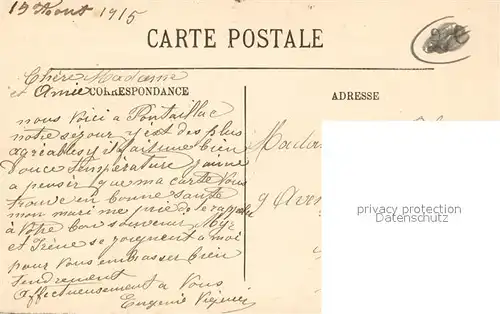 15 Aout 1915
CARTE POSTALE
Chère Madame
et Amie
CORRESPONDANCE
ADRESSE
nous voici a Pontaillac
notre séjour y est des plus
agréables y il fait une bien
douce température j'aime
a penser que ma carte vous
trouve en bonne santé
mon mari me prie de le rappeler
a votre bon souvenir
et Irène se joignent a moi
pour vous embrasser bien
tendrement
affectueusement a vous
Eugenie
9 Aven
privacy protection
Datenschutz